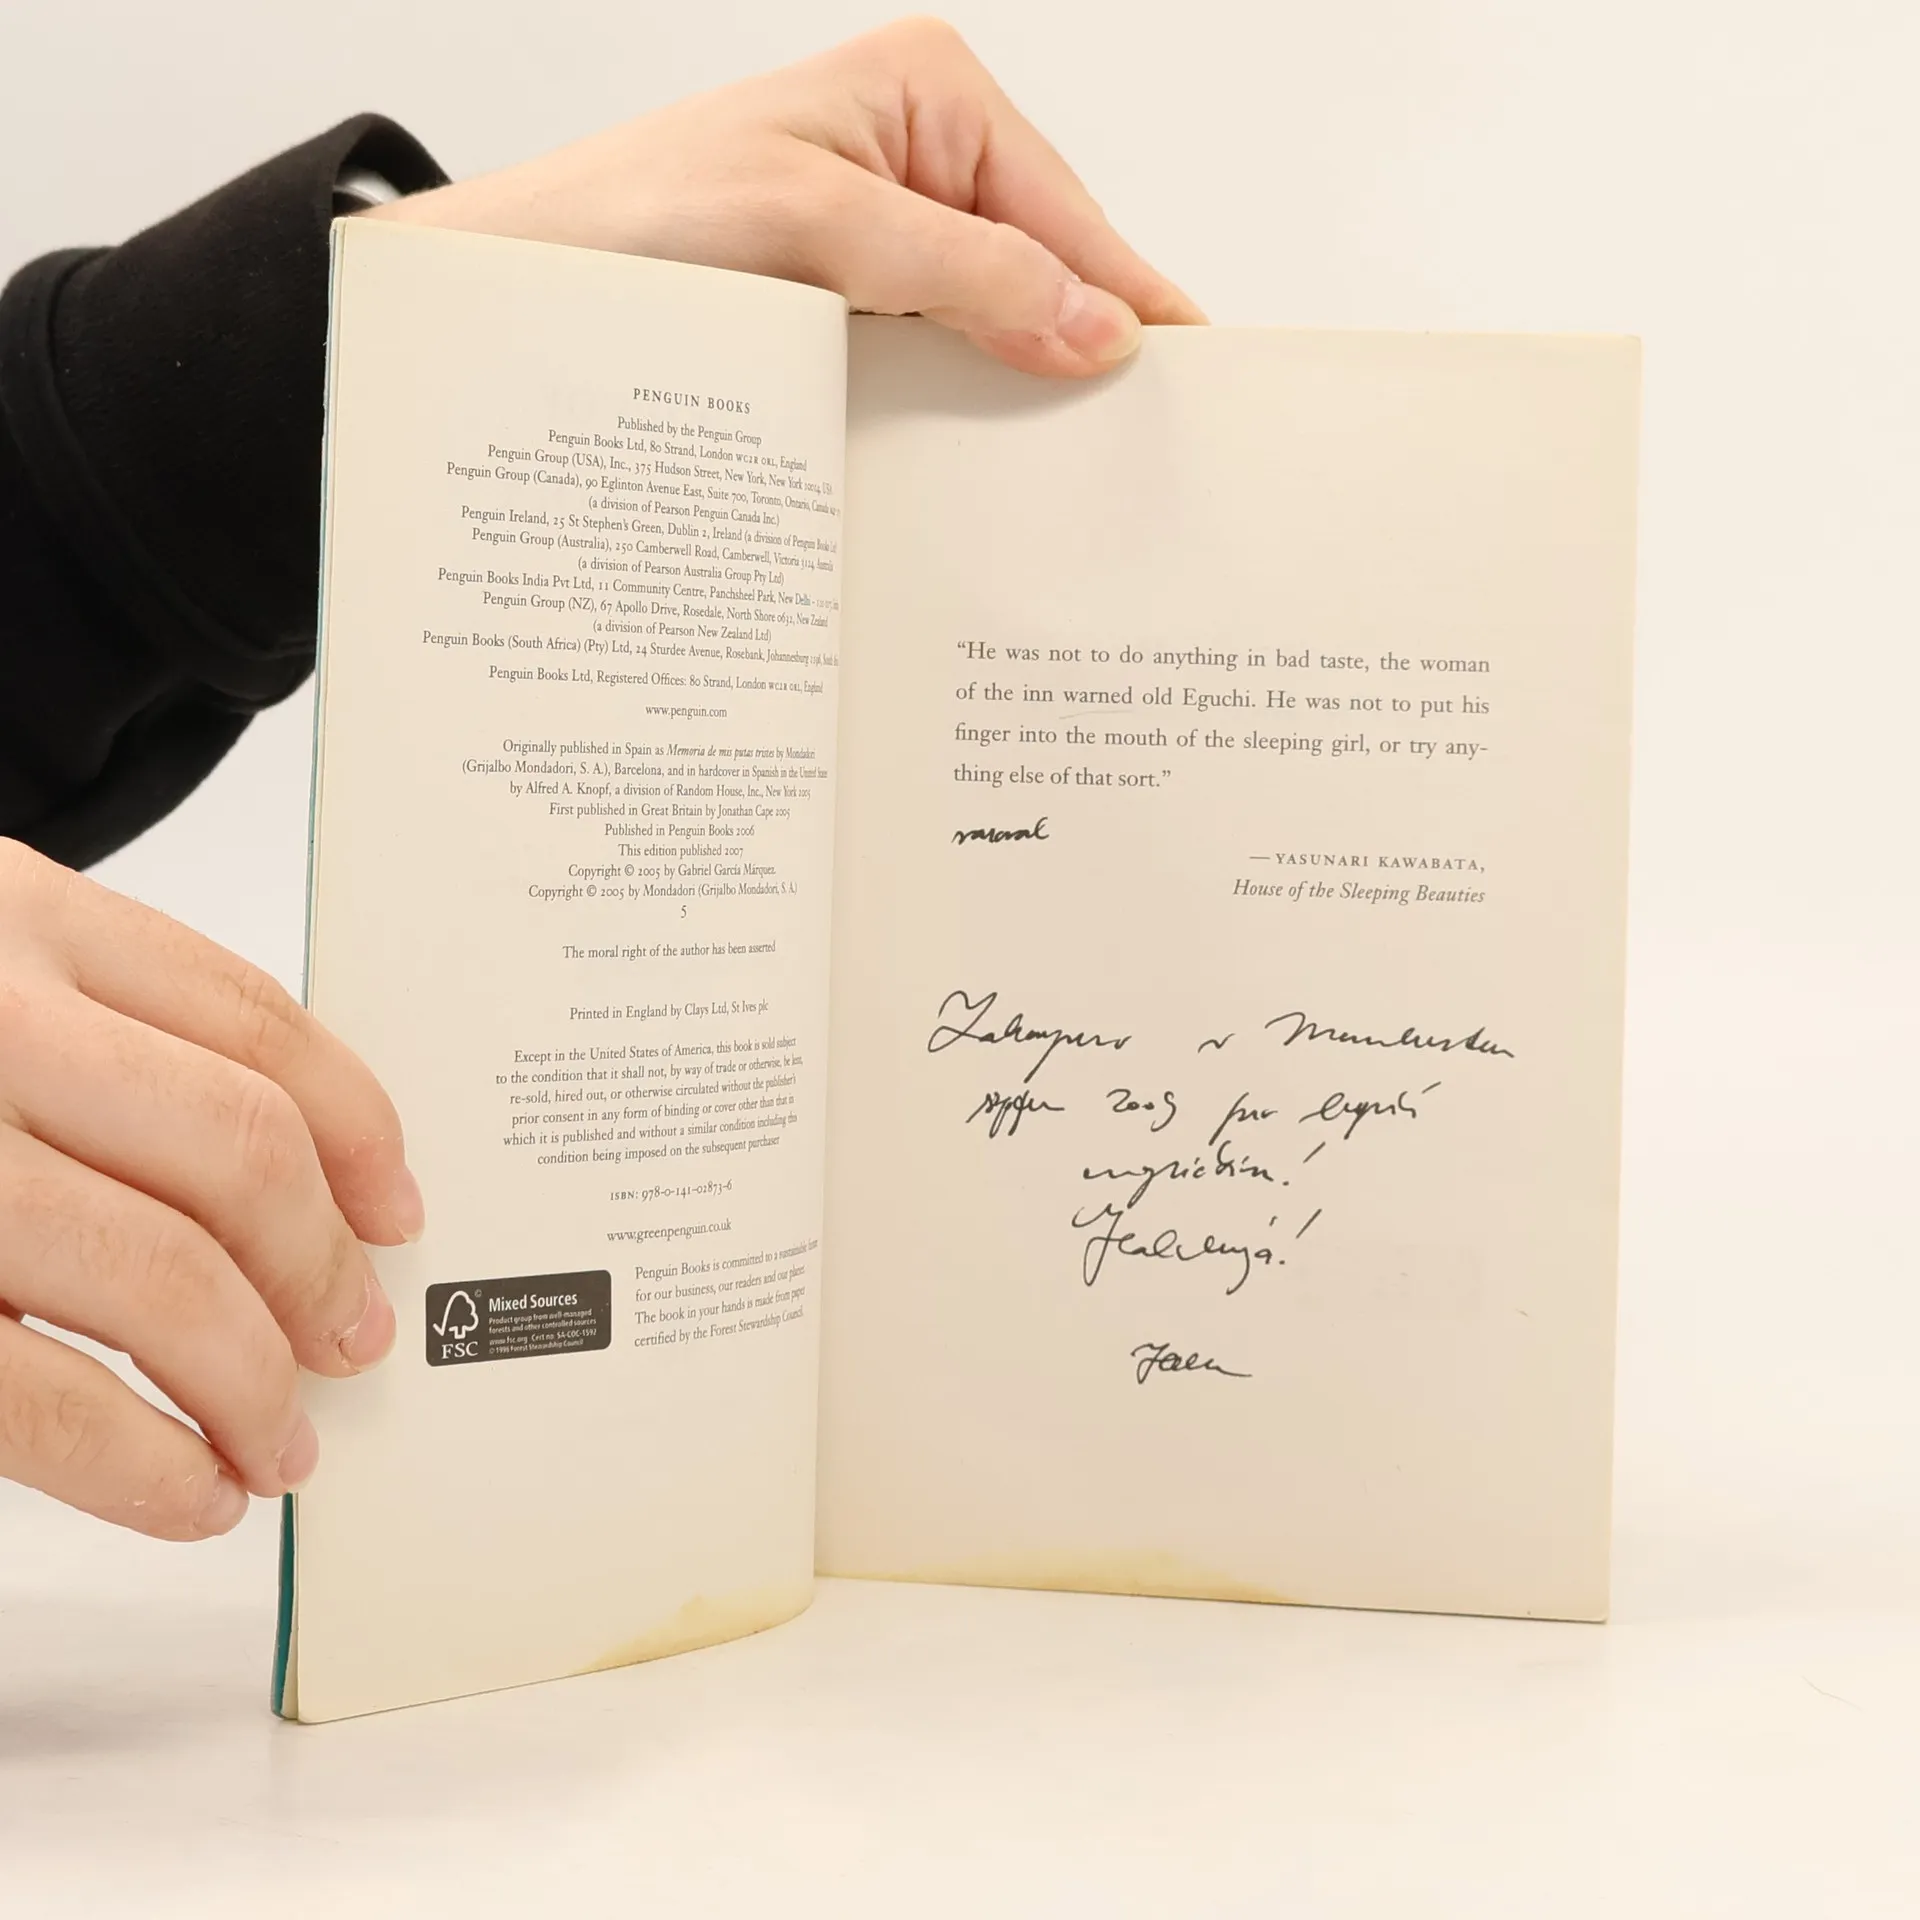 PENGUIN BOOKS
Published by the Penguin Group
Penguin Books Ltd, 80 Strand, London WC2R 0RL, England
Penguin Group (USA), Inc., 375 Hudson Street, New York, New York 10014, USA
Penguin Group (Canada), 90 Eglinton Avenue East, Suite 700, Toronto, Ontario, Canada
(a division of Pearson Penguin Canada Inc.)
Penguin Ireland, 25 St Stephen's Green, Dublin 2, Ireland (a division of Penguin Books Ltd)
Penguin Group (Australia), 250 Camberwell Road, Camberwell, Victoria 3124, Australia
(a division of Pearson Australia Group Pty Ltd)
Penguin Books India Pvt Ltd, 11 Community Centre, Panchsheel Park, New Delhi –
Penguin Group (NZ), 67 Apollo Drive, Rosedale, North Shore 0632, New Zealand
(a division of Pearson New Zealand Ltd)
Penguin Books (South Africa) (Pty) Ltd, 24 Sturdee Avenue, Rosebank, Johannesburg 2196,
Penguin Books Ltd, Registered Offices: 80 Strand, London WC2R 0RL, England
www.penguin.com
Originally published in Spain as Memoria de mis putas tristes by Mondadori
(Grijalbo Mondadori, S. A.), Barcelona, and in hardcover in Spanish in the United States
by Alfred A. Knopf, a division of Random House, Inc., New York 2005
First published in Great Britain by Jonathan Cape 2005
Published in Penguin Books 2006
This edition published 2007
Copyright © 2005 by Gabriel García Márquez
Copyright © 2005 by Mondadori (Grijalbo Mondadori, S. A.)
5
The moral right of the author has been asserted
Printed in England by Clays Ltd, St Ives plc
Except in the United States of America, this book is sold subject
to the condition that it shall not, by way of trade or otherwise, be lent,
re-sold, hired out, or otherwise circulated without the publisher's
prior consent in any form of binding or cover other than that in
which it is published and without a similar condition including this
condition being imposed on the subsequent purchaser
ISBN: 978-0-141-02873-6
www.greenpenguin.co.uk
© Mixed Sources
Product group from well-managed
forests and other controlled sources
www.fsc.org Cert no. SA-COC-1592
© 1996 Forest Stewardship Council
FSC
Penguin Books is committed to a sustainable future
for our business, our readers and our planet.
The book in your hands is made from paper
certified by the Forest Stewardship Council.
“He was not to do anything in bad taste, the woman
of the inn warned old Eguchi. He was not to put his
finger into the mouth of the sleeping girl, or try any-
thing else of that sort.”
— YASUNARI KAWABATA,
House of the Sleeping Beauties
v Manchester
2009 pro lepší